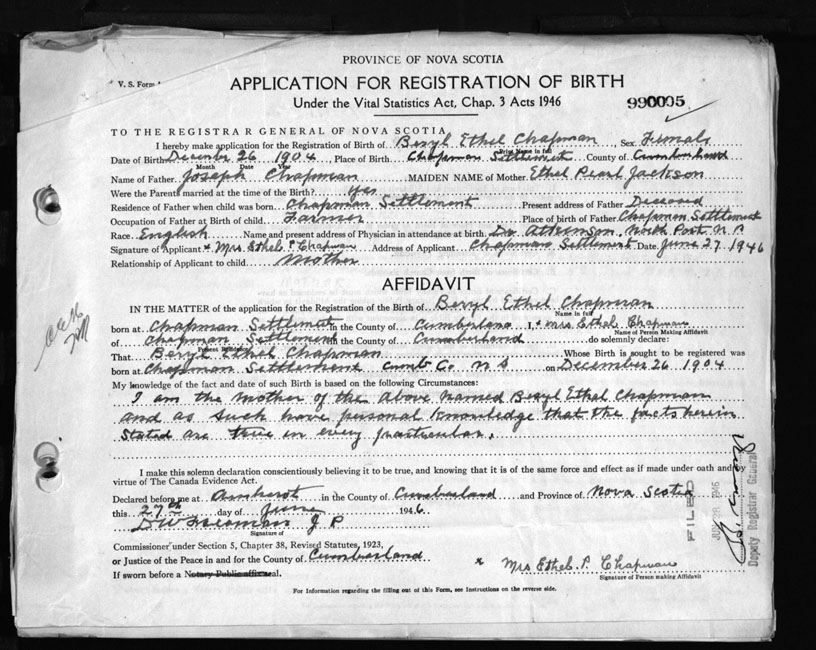 PROVINCE OF NOVA SCOTIA
V. S. Form
APPLICATION FOR REGISTRATION OF BIRTH
Under the Vital Statistics Act, Chap. 3 Acts 1946
990005
TO THE REGISTRAR GENERAL OF NOVA SCOTIA
I hereby make application for the Registration of Birth of Beryl Ethel Chapman, Sex Female
Print Name in full
Date of Birth December 26 1904, Place of Birth Chapman Settlement County of Cumberland
Month Date Year
Name of Father Joseph Chapman MAIDEN NAME of Mother Ethel Pearl Jackson
Were the Parents married at the time of the Birth? Yes
Residence of Father when child was born Chapman Settlement Present address of Father Deceased
Occupation of Father at Birth of child Farmer Place of birth of Father Chapman Settlement
Race English Name and present address of Physician in attendance at birth Dr Atkinson, North Port N S
Signature of Applicant x Mrs Ethel P Chapman Address of Applicant Chapman Settlement Date June 27, 1946
Relationship of Applicant to child Mother
AFFIDAVIT
IN THE MATTER of the application for the Registration of the Birth of Beryl Ethel Chapman
Name in full
born at Chapman Settlement in the County of Cumberland I, x Mrs Ethel Chapman
Name of Person Making Affidavit
of Chapman Settlement in the County of Cumberland do solemnly declare:
Present Residence
That Beryl Ethel Chapman Whose Birth is sought to be registered was
born at Chapman Settlement Cumb Co. N S on December 26 1904
My knowledge of the fact and date of such Birth is based on the following Circumstances:
I am the mother of the above named Beryl Ethel Chapman
and as such have personal knowledge that the facts herein
stated are true in every particular.
I make this solemn declaration conscientiously believing it to be true, and knowing that it is of the same force and effect as if made under oath and by
virtue of The Canada Evidence Act.
Declared before me at Amherst in the County of Cumberland and Province of Nova Scotia
this 27th day of June 1946.
D W Freeman J P
Signature of
Commissioner under Section 5, Chapter 38, Revised Statutes, 1923,
or Justice of the Peace in and for the County of Cumberland
x Mrs Ethel. P. Chapman
Signature of Person making Affidavit
If sworn before a Notary Public affix seal.
For Information regarding the filling out of this Form, see Instructions on the reverse side.
FILED
28 1946
Deputy Registrar General